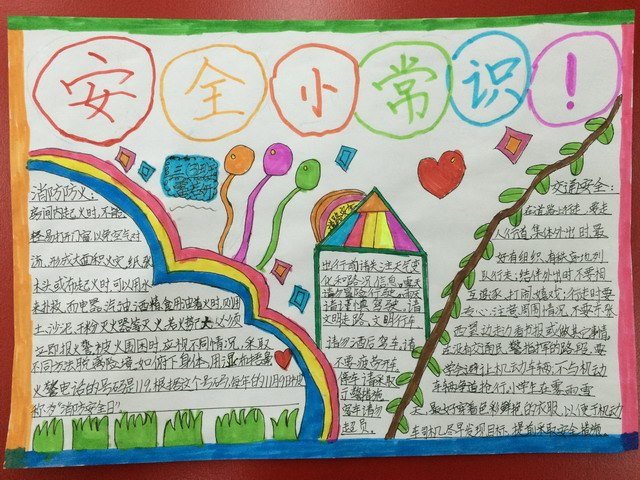 安全小常识！
消防防火：
房间内起火时,不能
轻易打开门窗,以免空气对
流,形成大面积火灾,纸张、
木头或布起火时,可以用水
来扑救,而电器、汽油、酒精、食用油着火时,则用
土、沙泥、干粉灭火器等灭火,若火势大,必须
立即报火警,被火围困时,应根不同情况,采取
不同方法脱离险境,如俯下身体,用湿布捂鼻
火警电话的号码是119.根据这个号码,每年的11月9日被
称为“消防安全日”。
出行前请关注天气变
化和路况信息,
文明走路,文明行车
请勿酒后驾车,请
不要疲劳驾车
停车请采取
驾车请勿
超员。
交通安全：
在道路上行走,要走
人行道,集体外出时,最
好有组织、有秩序地列
队行走;结伴外出时,不要相
互追逐、打闹、嬉戏;行走时要
专心,注意周围情况,不要东张
西望、边走边看书报或做其它事情
在没有交通民警指挥的路段,要
学会避让机动车辆,不与机动
车辆争道抢行,小学生在雾、雨、雪
天,最好穿着色彩鲜艳的衣服,以便于机动
车司机尽早发现目标,提前采取安全措施